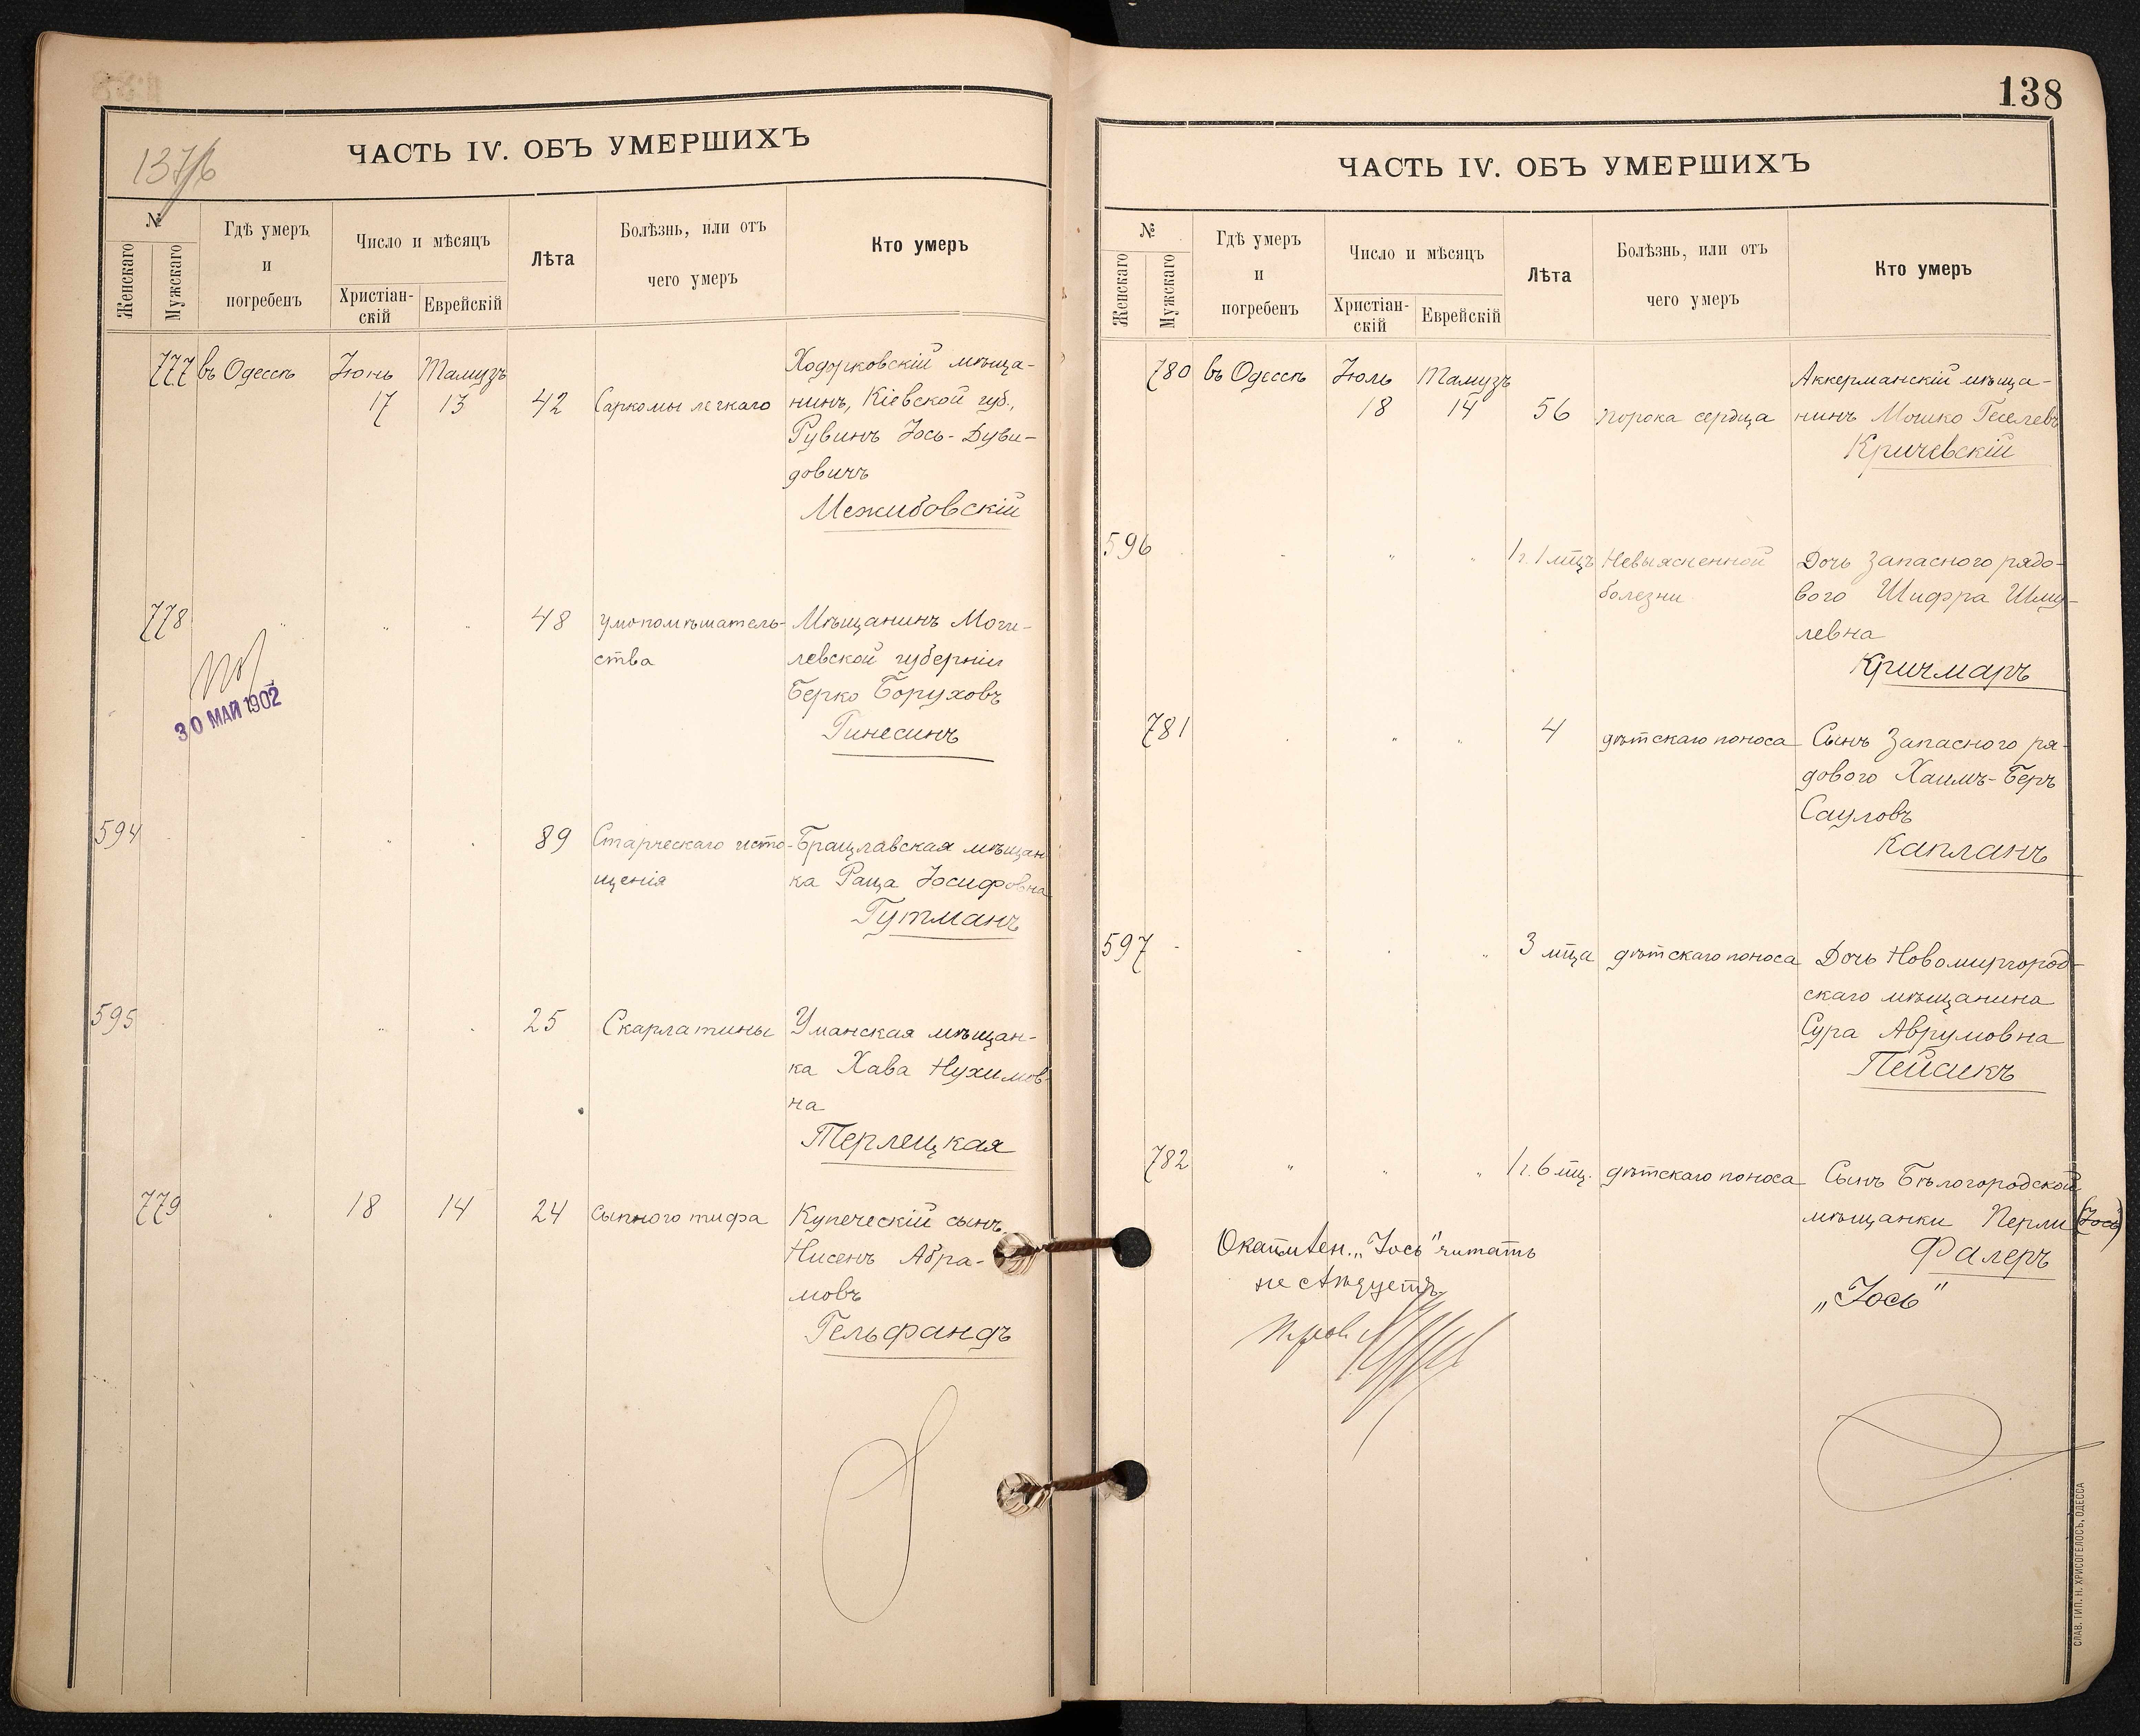 137/б
ЧАСТЬ IV. ОБЪ УМЕРШИХЪ
№
Женскаго
Мужскаго
Гдѣ умеръ
и
погребенъ
Число и мѣсяцъ
Христіан-
скій
Еврейскій
Лѣта
Болѣзнь, или отъ
чего умеръ
Кто умеръ
777 въ Одессѣ Іюнь Тамузъ Ходорковскій мѣща-
17 13 42 Саркомы легкаго нинъ, Кіевской губ.,
Рувинъ Іось-Дуви-
довичъ
Межибовскій
778 " " " 48 умопомѣшатель- Мѣщанинъ Моги-
ства левской губерніи
Берко Боруховъ
Гинесинъ
30 МАЙ 1902
594 89 Старческаго исто- Брацлавская мѣщан
щенія ка Раца Іосифовна
Гутманъ
595 " 25 Скарлатины Уманская мѣщан-
ка Хава Нухимов-
на
Терлецкая
779 18 14 24 Сыпного тифа Купеческій сынъ
Нисенъ Абра-
мовъ
Гельфандъ
138
ЧАСТЬ IV. ОБЪ УМЕРШИХЪ
№
Женскаго
Мужскаго
Гдѣ умеръ
и
погребенъ
Число и мѣсяцъ
Христіан-
скій
Еврейскій
Лѣта
Болѣзнь, или отъ
чего умеръ
Кто умеръ
780 въ Одессѣ Іюль Тамузъ Аккерманскій мѣща-
18 14 56 порока сердца нинъ Мошко Геселевъ
Кричевскій
596 " " 1 г. 1 мцъ Невыясненной Дочь Запасного рядо-
болезни вого Шифра Шму-
левна
Кричмаръ
781 " " 4 дѣтскаго поноса Сынъ Запасного ря-
дового Хаимъ-Беръ
Сауловъ
Капланъ
597 " 3 мца дѣтскаго поноса Дочь Новомиргород-
скаго мѣщанина
Сура Аврумовна
Пейсикъ
782 " " " 1 г. 6 мц. дѣтскаго поноса Сынъ Бѣлогородской
мѣщанки Перли (Іось)
Фалеръ
"Іось"
"Іось" читать
не слѣдуетъ
СЛАВ. ТИП. Н. ХРИСОГЕЛОСЪ, ОДЕССА